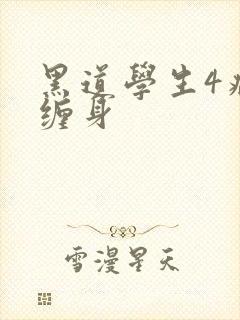 黑道學生4
缠身
雪漫星天